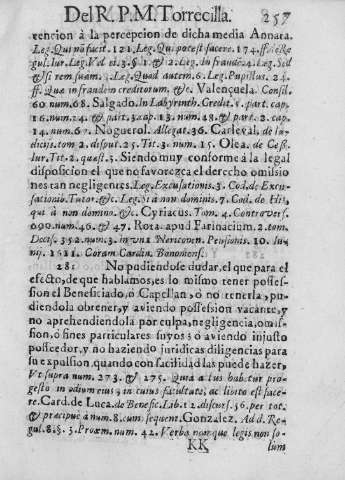 Del R. P. M. Torrecilla. 257
tencion à la percepcion de dicha media Annata.
Leg. Qui nõ facit. 121. Leg. Qui potest facere. 174. ff. de Re
gul. Iur. Leg. Vel ei. 3. § 1. & 2. Leg. In fraudẽ. 4. Leg. Sed
& si rem suam. 5. Leg. Quod autem. 6. Leg. Pupillus. 24.
ff. Quæ in fraudem creditorum, &c. Valençuela. Consil.
60. num. 68. Salgado. In Labyrinth. Credit. 1. part. cap.
16. num. 24. & part. 3. cap. 13. num. 48. & part. 2. cap.
14. num. 67. Noguerol. Allegat. 36. Carleval. de Iu-
dicijs. tom. 2. disput. 25. Tit. 3. num. 15. Olea. de Cess.
Iur. Tit. 2. quæst. 5. Siendo muy conforme à la legal
disposicion el que no favorezca el derecho omisio
nes tan negligentes. Leg. Excusationis. 3. Cod. de Excu-
sationib. Tutor. &c. Leg. Si à non dominis. 7. Cod. de His,
qui à non domino. &c. Cyriacus. Tom. 4. Controvers.
690. num. 46. & 47. Rota apud Farinacium. 2. tom.
Decis. 352. num. 3. in vna Nericonen. Pensionis. 10. Iu-
nij. 1611. Coram Cardin. Bonomensi.
281 No pudiendose dudar, el que para el
efecto, de que hablamos, es lo mismo tener posses-
sion el Beneficiado, ò Capellan, ò no tenerla, pu-
diendola obtener, y aviendo possession vacante, y
no aprehendiendola por culpa, negligencia, omis-
sion, ò fines particulares suyos ò aviendo injusto
posseedor, y no haziendo juridicas diligencias para
su expulsion quando con facilidad las puede hazer,
Vt supra num. 273. & 275. Quia actus habetur pro
gesto in odium eius, in cuius facultate, ac libito est face-
re. Card. de Luca. de Benefic. Lib. 12. discurs. 56. per tot.
& præcipuè à num. 8. cum sequent. Gonzalez. Ad d. Re-
gul. 8. §. 3. Proœm. num. 42. Verba nanque legis non so-
KK lùm